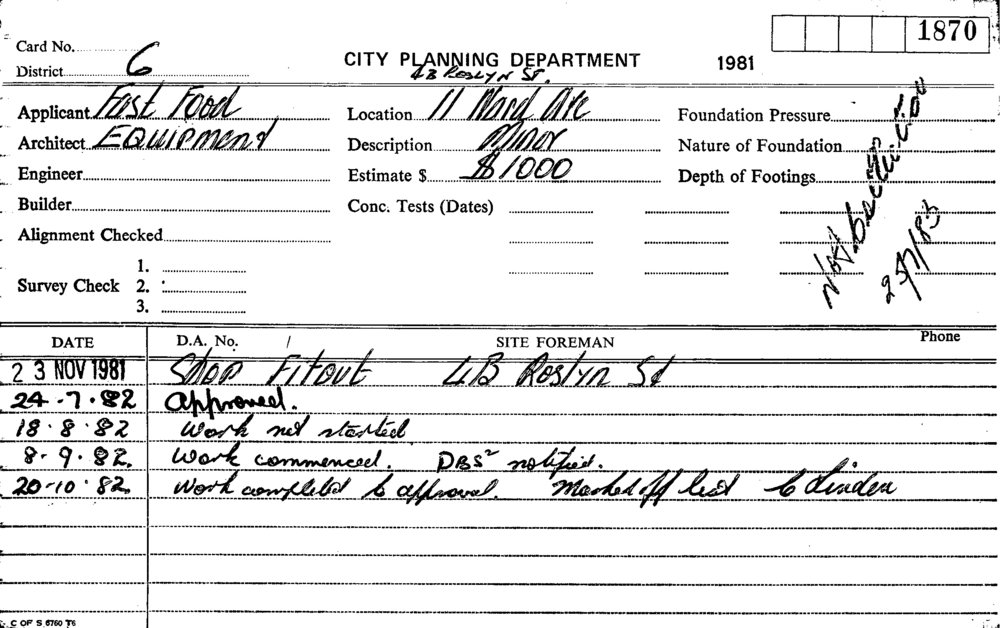 1870
Card No.
CITY PLANNING DEPARTMENT 1981
District 6
4B ROSLYN ST.
Applicant Fast Food Location 11 Ward Ave Foundation Pressure
Architect EQUIPMENT Description Minor Nature of Foundation
Engineer Estimate $ $1000 Depth of Footings
Builder Conc. Tests (Dates)
Alignment Checked
1.
Survey Check 2.
3.
25/7/83
DATE D.A. No. / SITE FOREMAN Phone
23 NOV 1981 Shop Fitout 4B Roslyn St
24.7.82 Approved.
18.8.82 Work not started
8.9.82. Work commenced. DBS² notified.
20-10.82. Work completed to approval. Marked off list
C OF S 6760 76